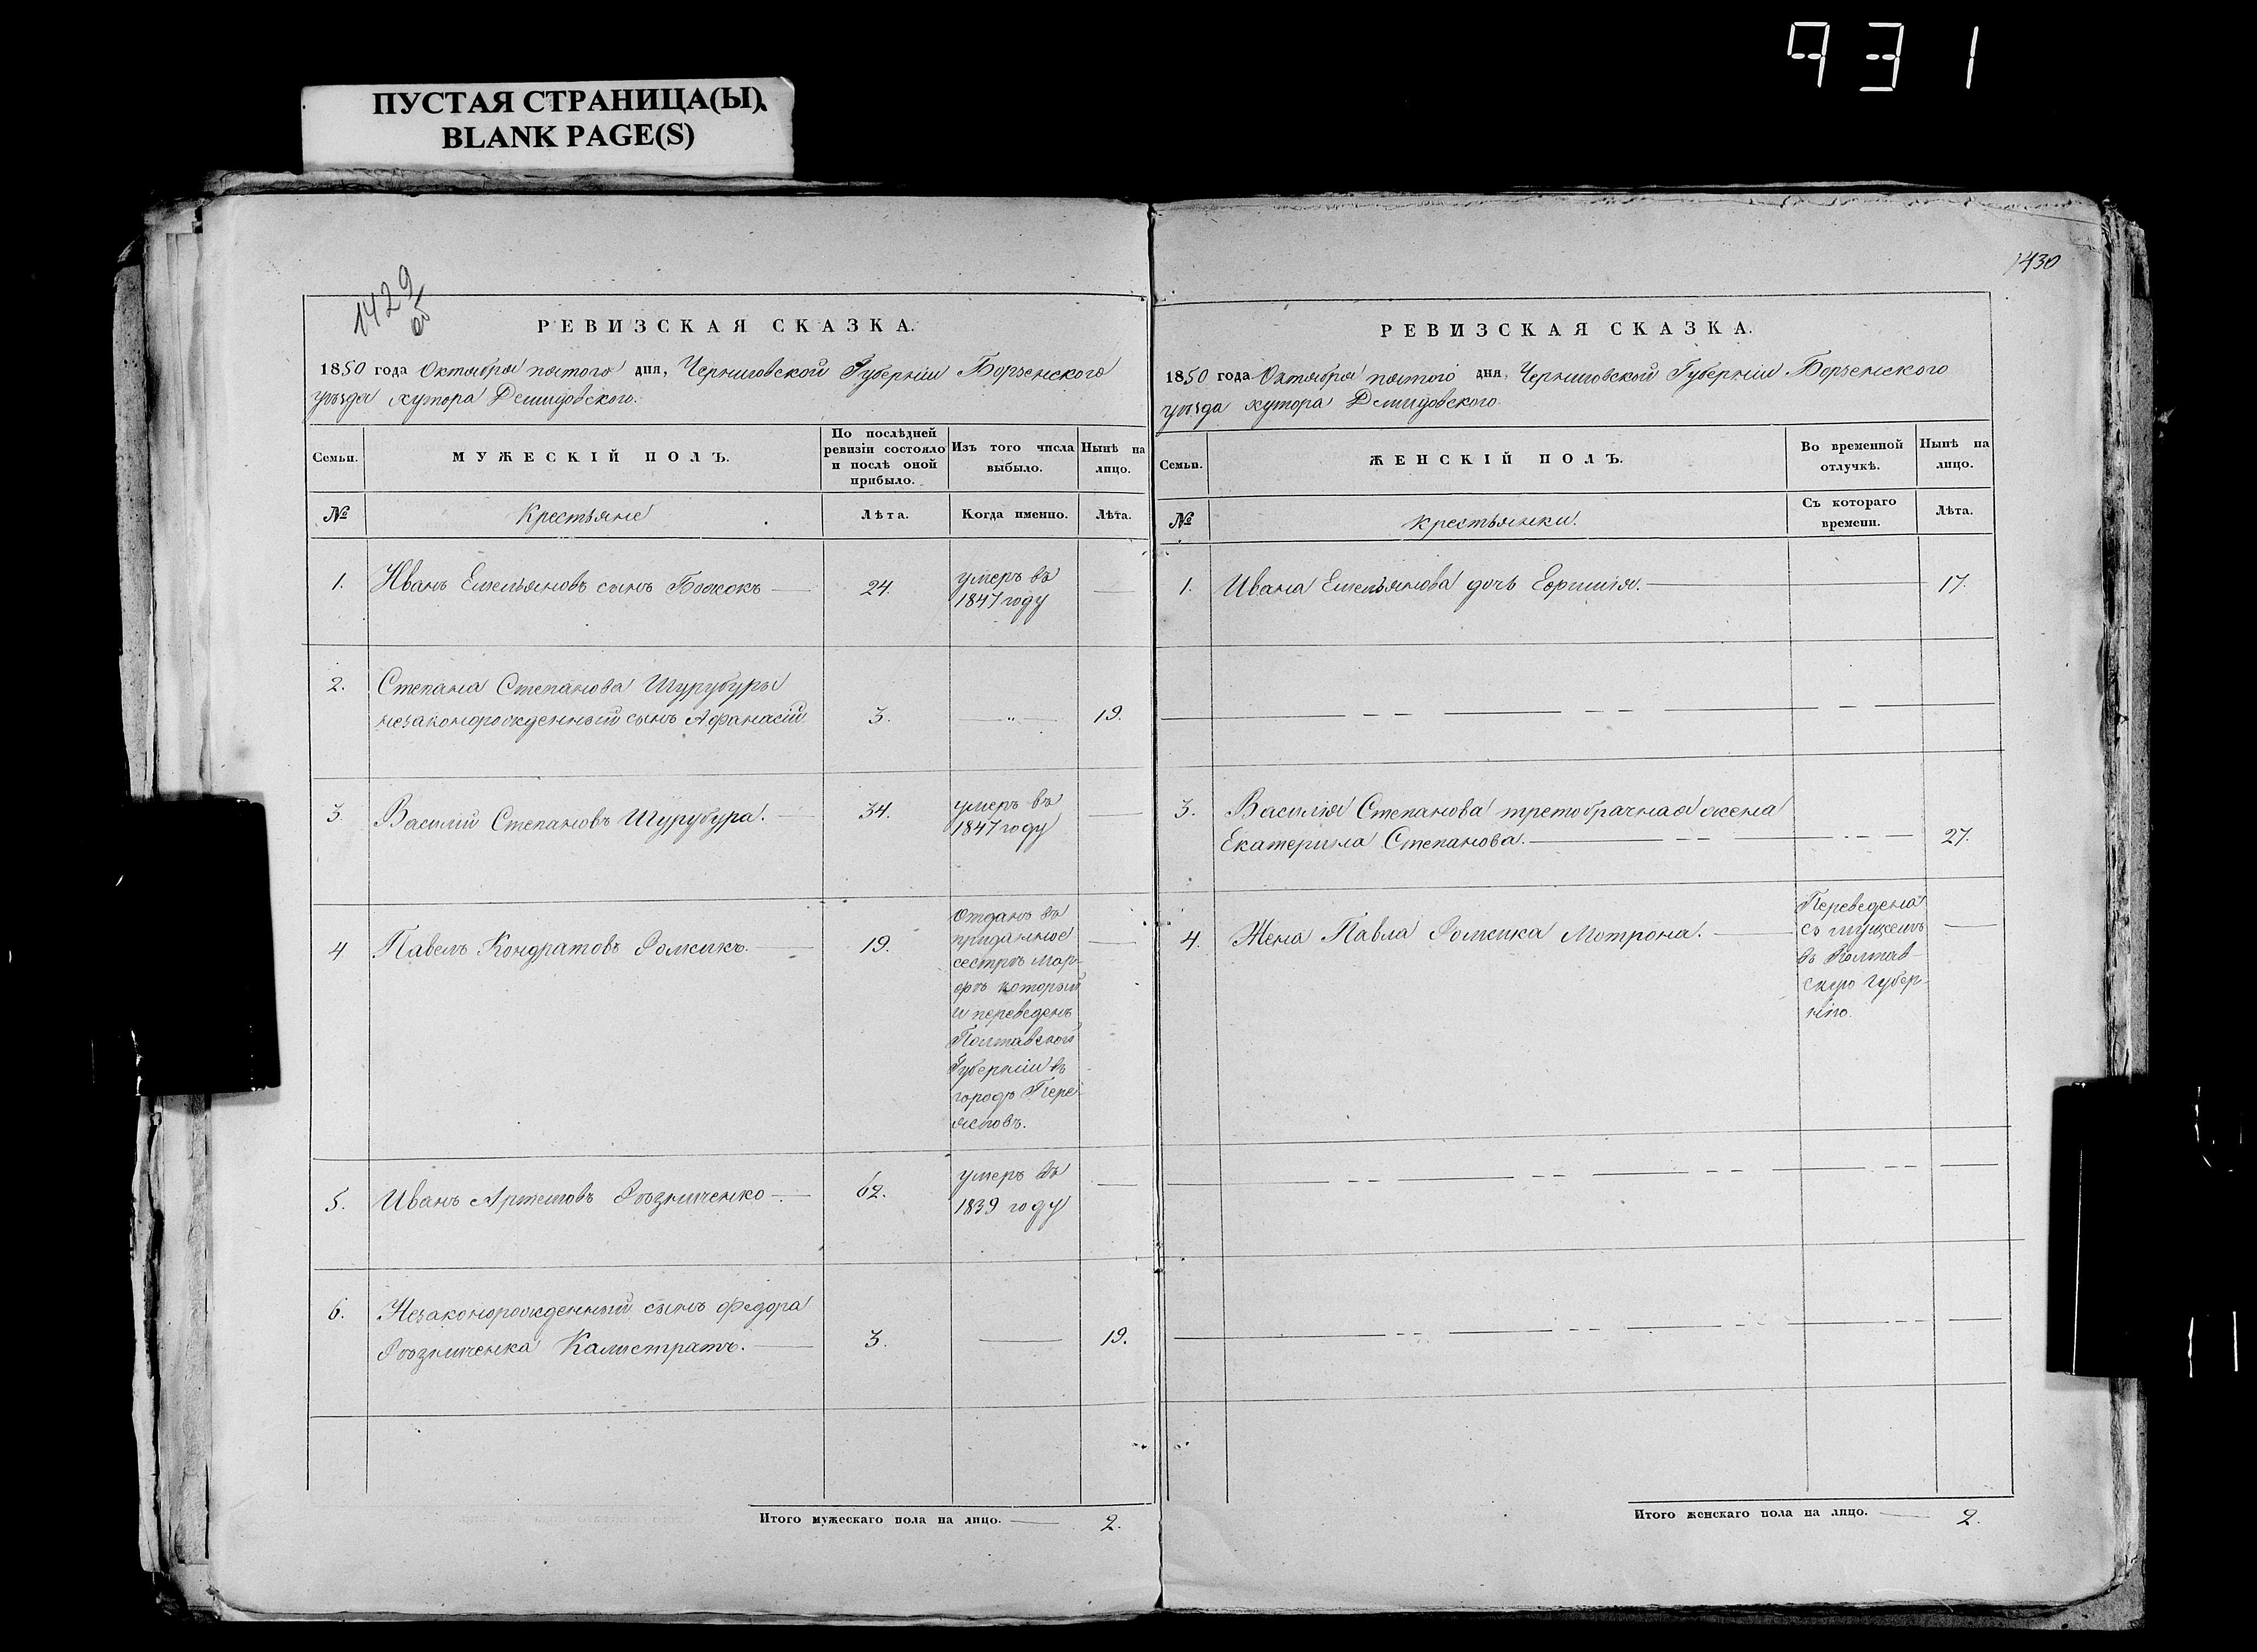 931
ПУСТАЯ СТРАНИЦА(Ы).
BLANK PAGE(S)
1429
об
РЕВИЗСКАЯ СКАЗКА.
1850 года Октября пятого дня, Черниговской Губерніи Борзенского
уѣзда хутора Демидовского.
Семьи.
МУЖЕСКІЙ ПОЛЪ.
По послѣдней
ревизіи состояло
и послѣ оной
прибыло.
Изъ того числа
выбыло.
Нынѣ на
лицо.
№
Крестьяне
Лѣта.
Когда именно.
Лѣта.
1. Иванъ Емельяновъ сынъ Божокъ — 24. умеръ въ —
1847 году
2. Степана Степанова Шурубуры
незаконорожденный сынъ Афанасій 3. — „ — 19.
3. Василій Степановъ Шурубура. — 34. умеръ въ —
1847 году
4 Павелъ Кондратовъ — 19. Отданъ въ
приданное —
сестрѣ Мар-
фѣ который
и переведенъ
Полтавской
Губерніи въ
городъ Пере-
яслов.
5. Иванъ Артемовъ Рѣзниченко — 62. умеръ въ —
1839 году
6. Незаконорожденный сынъ Федора
Рѣзниченка Калистратъ. — 3. — 19.
Итого мужескаго пола на лицо. — 2.
1430
РЕВИЗСКАЯ СКАЗКА.
1850 года Октября пятого дня, Черниговской Губерніи Борзенского
уѣзда хутора Демидовского.
Семьи.
ЖЕНСКІЙ ПОЛЪ.
Во временной
отлучкѣ.
Нынѣ на
лицо.
№
Крестьянки.
Съ котораго
времени.
Лѣта.
1. Ивана Емельянова дочь Ефимія. — 17.
3. Василія Степанова третобрачная жена
Екатерина Степанова. — 27.
4. Жена Павла Мотрона. — Переведена
съ мужемъ —
въ Полтав-
скую Губер-
нію.
Итого женскаго пола на лицо. — 2.